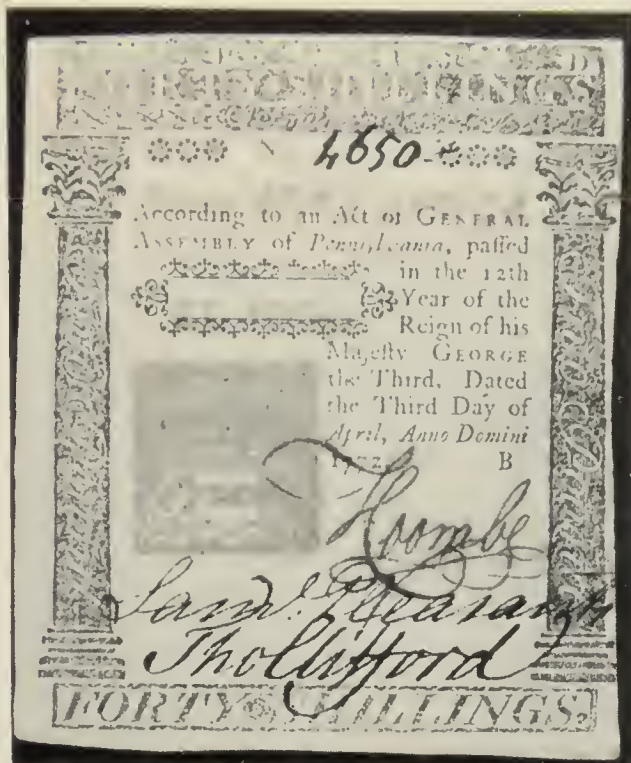 4650
According to an Act of GENERAL
ASSEMBLY of Pennſylvania, paſſed
in the 12th
Year of the
Reign of his
Majeſty GEORGE
the Third. Dated
the Third Day of
April, Anno Domini
1772. B
Hoombe
Saml. Pleasants
Tho Clifford
FORTY SHILLINGS.